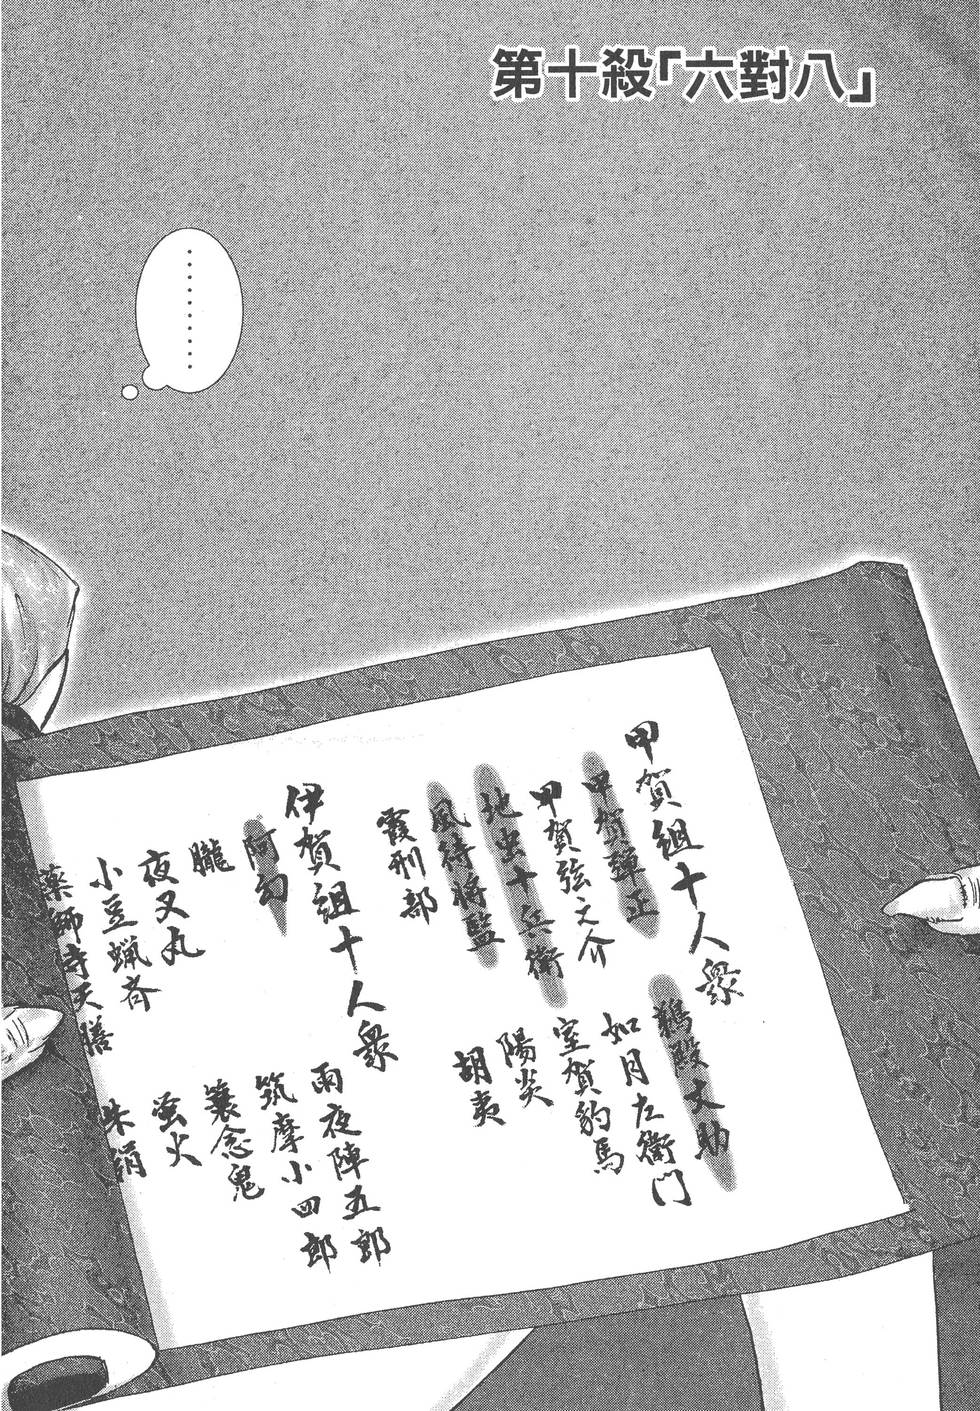 第十殺「六對八」
………
甲賀組十人衆
甲賀彈正
甲賀弦之介
地虫十兵衛
風待将監
霞刑部
鵜殿丈助
如月左衛門
室賀豹馬
陽炎
胡夷
伊賀組十人衆
阿幻
朧
夜叉丸
小豆蝋斉
薬師寺天膳
雨夜陣五郎
筑摩小四郎
蓑念鬼
蛍火
朱絹